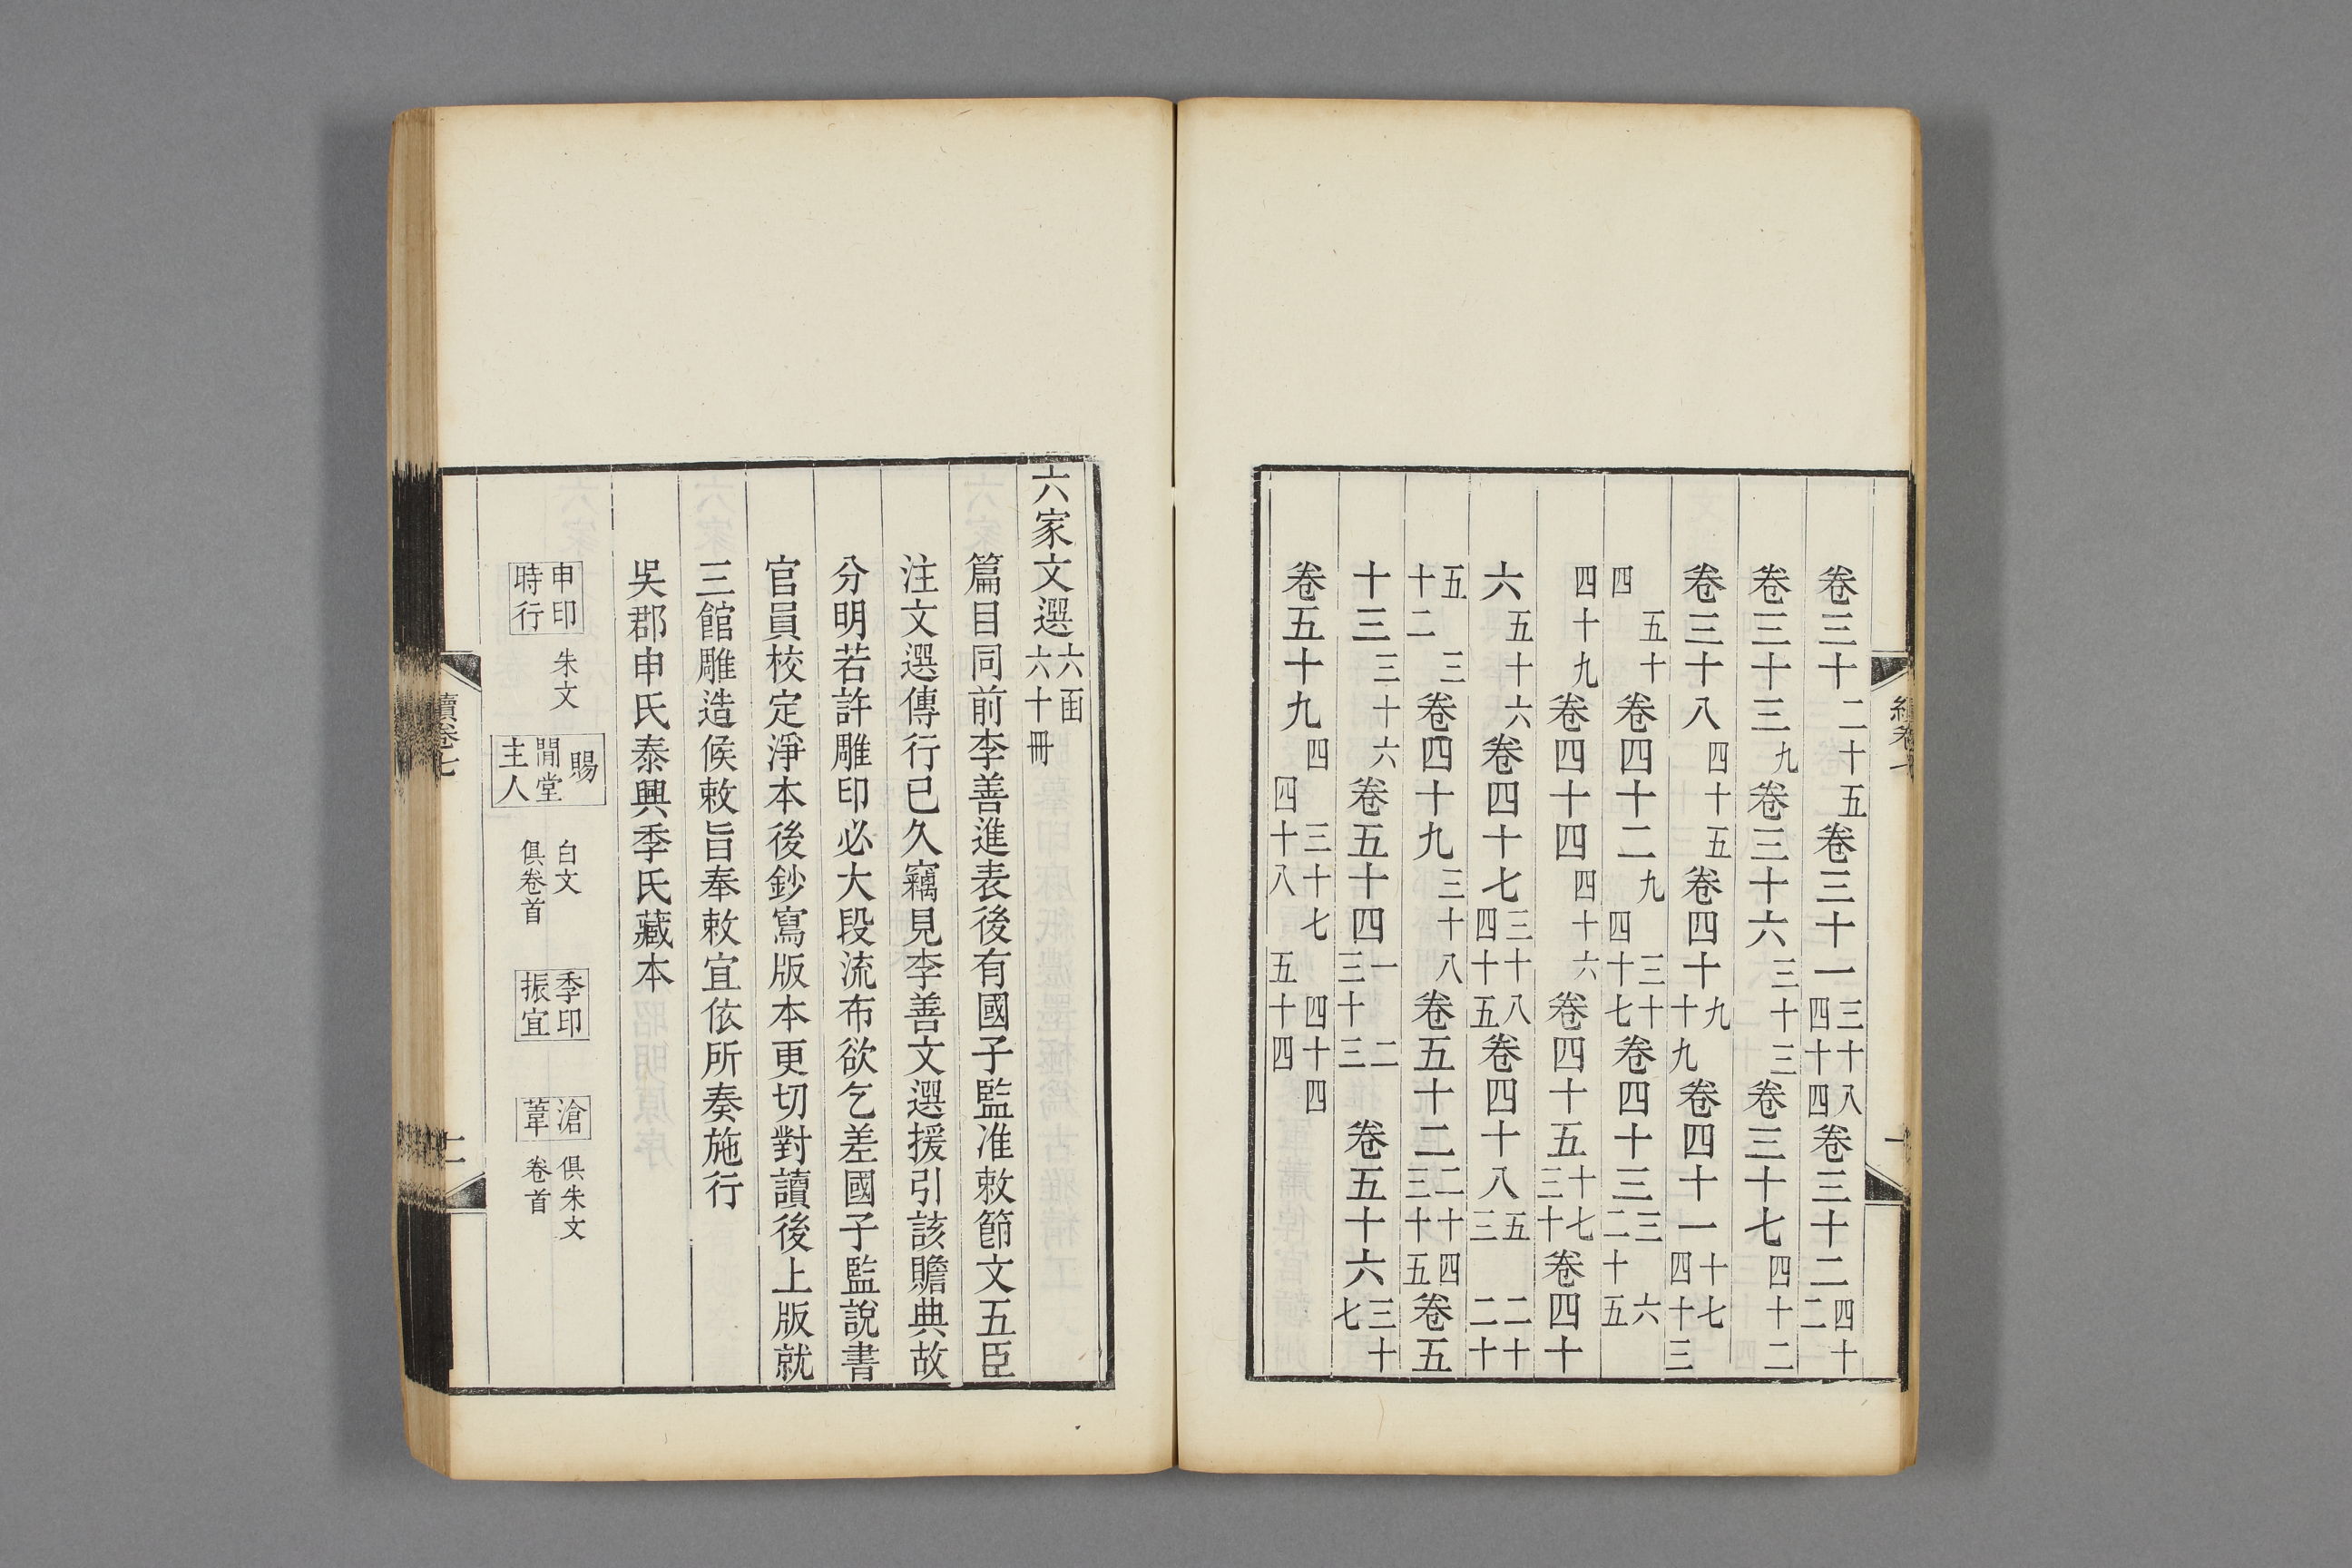 卷三十二十五卷三十一三十八四十四卷三十二四十二
卷三十三九卷三十六三十三卷三十七四十二
卷三十八四十五卷四十九十九卷四十一十七四十三
五十四卷四十二九三十四十七卷四十三三六二十五
四十九卷四十四四十六卷四十五十七三十卷四十
六五十六卷四十七三十八四十五卷四十八五二十三二十
五三十二卷四十九三十八卷五十二二十四三十五卷五
十三三十六卷五十四一二三十三卷五十六三十七
卷五十九四三十七四十四四十八五十四
六家文選六函六十冊
篇目同前李善進表後有國子監准敕節文五臣
注文選傳行已久竊見李善文選援引該贍典故
分明若許雕印必大段流布欲乞差國子監說書
官員校定淨本後鈔寫版本更切對讀後上版就
三館雕造候敕旨奉敕宜依所奏施行
吳郡申氏泰興季氏藏本
申印時行 朱文 賜閒堂主人 白文俱卷首 季印振宜 滄葦 俱朱文卷首
續卷七